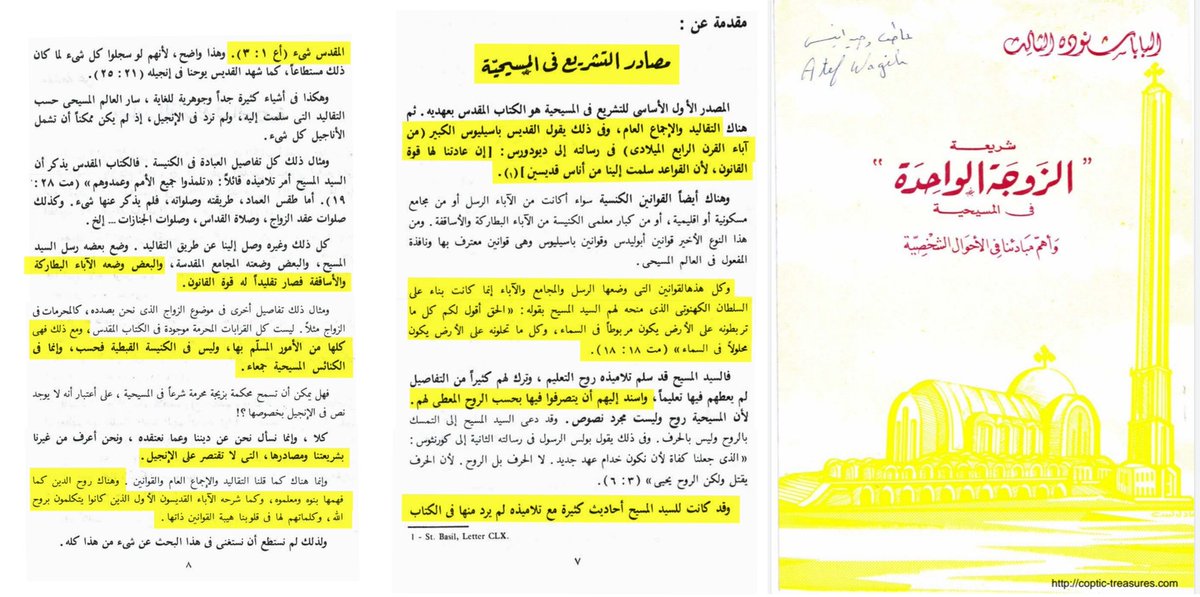 البابا شنوده الثالث
عاطف وجيه
Atef Wagih
شريعة
"الزوجة الواحدة"
فى المسيحية
وأهم مبادئنا فى الأحوال الشخصية
http://coptic-treasures.com
مقدمة عن :
مصادر التشريع فى المسيحية
المصدر الأول الأساسى للتشريع فى المسيحية هو الكتاب المقدس بعهديه . ثم
هناك التقاليد والإجماع العام، وفى ذلك يقول القديس باسيليوس الكبير (من
آباء القرن الرابع الميلادى) فى رسالته إلى ديودورس: [إن عادتنا لها قوة
القانون، لأن القواعد سلمت إلينا من أناس قديسين](١).
وهناك أيضاً القوانين الكنسية سواء أكانت من الآباء الرسل أو من مجامع
مسكونية أو اقليمية، أو من كبار معلمى الكنيسة من الآباء البطاركة والأساقفة . ومن
هذا النوع الأخير قوانين أبوليدس وقوانين باسيليوس وهى قوانين معترف بها ونافذة
المفعول فى العالم المسيحى.
وكل هذهالقوانين التى وضعها الرسل والمجامع والآباء إنما كانت بناء على
السلطان الكهنوتى الذى منحه لهم السيد المسيح بقوله: «الحق أقول لكم كل ما
تربطونه على الأرض يكون مربوطاً فى السماء، وكل ما تحلونه على الأرض يكون
محلولاً فى السماء» (مت ١٨ : ١٨).
فالسيد المسيح قد سلم تلاميذه روح التعليم ، وترك لهم كثيراً من التفاصيل
لم يعطهم فيها تعليماً، واسند إليهم أن يتصرفوا فيها بحسب الروح المعطى لهم .
لأن المسيحية روح وليست مجرد نصوص. وقد دعى السيد المسيح إلى التمسك
بالروح وليس بالحرف. وفى ذلك يقول بولس الرسول فى رسالته الثانية إلى كورنثوس:
«الذى جعلنا كفاة لأن نكون خدام عهد جديد . لا الحرف بل الروح . لأن الحرف
يقتل ولكن الروح يحيى» (٣ : ٦).
وقد كانت للسيد المسيح أحاديث كثيرة مع تلاميذه لم يرد منها فى الكتاب
1 - St. Basil, Letter CLX.
٧
المقدس شىء (أع ١ : ٣). وهذا واضح، لأنهم لو سجلوا كل شىء لما كان
ذلك مستطاعاً، كما شهد القديس يوحنا فى إنجيله (٢١ : ٢٥).
وهكذا فى أشياء كثيرة جداً وجوهرية للغاية ، سار العالم المسيحى حسب
التقاليد التى سلمت إليه، ولم ترد فى الإنجيل، إذ لم يكن ممكناً أن تشمل
الأناجيل كل شىء.
ومثال ذلك كل تفاصيل العبادة فى الكنيسة . فالكتاب المقدس يذكر أن
السيد المسيح أمر تلاميذه قائلاً: «تلمذوا جميع الأمم وعمدوهم» (مت ٢٨ :
١٩). أما طقس العماد، طريقته وصلواته، فلم يذكر عنها شىء. وكذلك
صلوات عقد الزواج، وصلاة القداس، وصلوات الجنازات ... إلخ.
كل ذلك وغيره وصل إلينا عن طريق التقاليد . وضع بعضه رسل السيد
المسيح، والبعض وضعته المجامع المقدسة، والبعض وضعه الآباء البطاركة
والأساقفة فصار تقليداً له قوة القانون.
ومثال ذلك تفاصيل أخرى فى موضوع الزواج الذى نحن بصدده، كالمحرمات فى
الزواج مثلاً. ليست كل القرابات المحرمة موجودة فى الكتاب المقدس، ومع ذلك فهى
كلها من الأمور المسلّم بها، وليس فى الكنيسة القبطية فحسب، وإنما فى
الكنائس المسيحية جمعاء.
فهل يمكن أن تسمح محكمة بزيجة محرمة شرعاً فى المسيحية ، على أعتبار أنه لا يوجد
نص فى الإنجيل بخصوصها ؟!
كلا ، وإنما نسأل نحن عن ديننا وعما نعتقده ، ونحن أعرف من غيرنا
بشريعتنا ومصادرها، التى لا تقتصر على الإنجيل.
وإنما هناك كما قلنا التقاليد والإجماع العام والقوانين . وهناك روح الدين كما
فهمها بنوه ومعلموه، وكما شرحه الآباء القديسون الأول الذين كانوا يتكلمون بروح
الله ، وكلماتهم لها فى قلوبنا هيبة القوانين ذاتها.
ولذلك لم نستطع أن نستغنى فى هذا البحث عن شىء من هذا كله .
٨